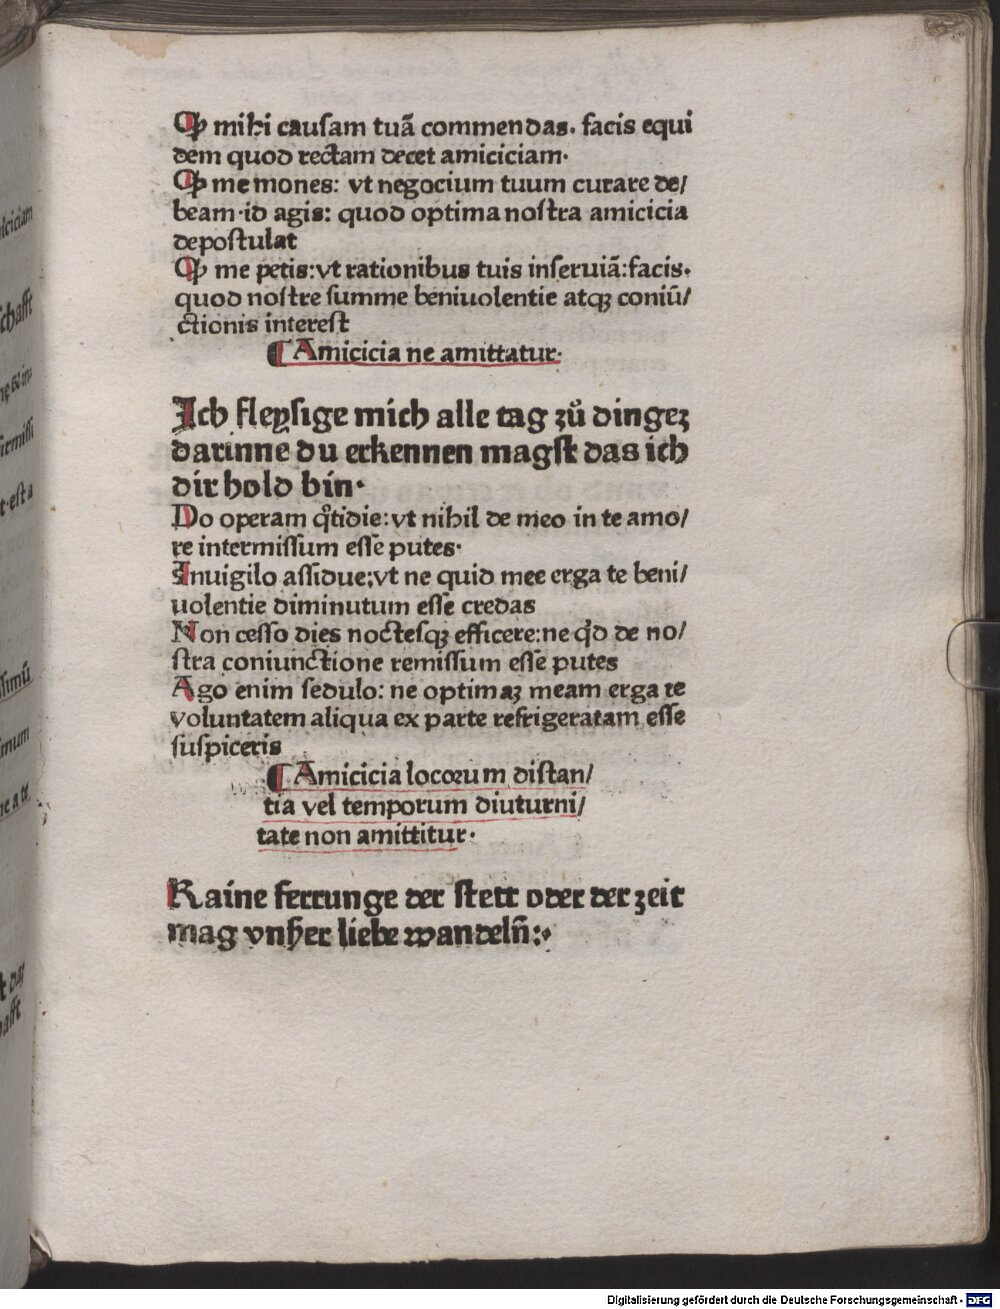 Ꝙ mihi causam tuã commendas. facis equi
dem quod rectam decet amiciciam.
Ꝙ me mones: vt negocium tuum curare de/
beam. id agis: quod optima nostra amicicia
depostulat
Ꝙ me petis: vt rationibus tuis inseruiã: facis.
quod nostre summe beniuolentie atqꝫ coniũ/
ctionis interest
¶ Amicicia ne amittatur.
Ich fleysige mich alle tag zů dingeꝫ
darinne du erkennen magst das ich
dir hold bin.
Do operam q̊tidie: vt nihil de meo in te amo/
re intermissum esse putes.
Inuigilo assidue: vt ne quid mee erga te beni/
uolentie diminutum esse credas
Non cesso dies noctesqꝫ efficere: ne qd̓ de no/
stra coniunctione remissum esse putes
Ago enim sedulo: ne optimaꝫ meam erga te
voluntatem aliqua ex parte refrigeratam esse
suspiceris
¶ Amicicia locorum distan/
tia vel temporum diuturni/
tate non amittitur.
Kaine ferrunge der stett oder der zeit
mag vnßer liebe wandeln̄:.
Digitalisierung gefördert durch die Deutsche Forschungsgemeinschaft - DFG